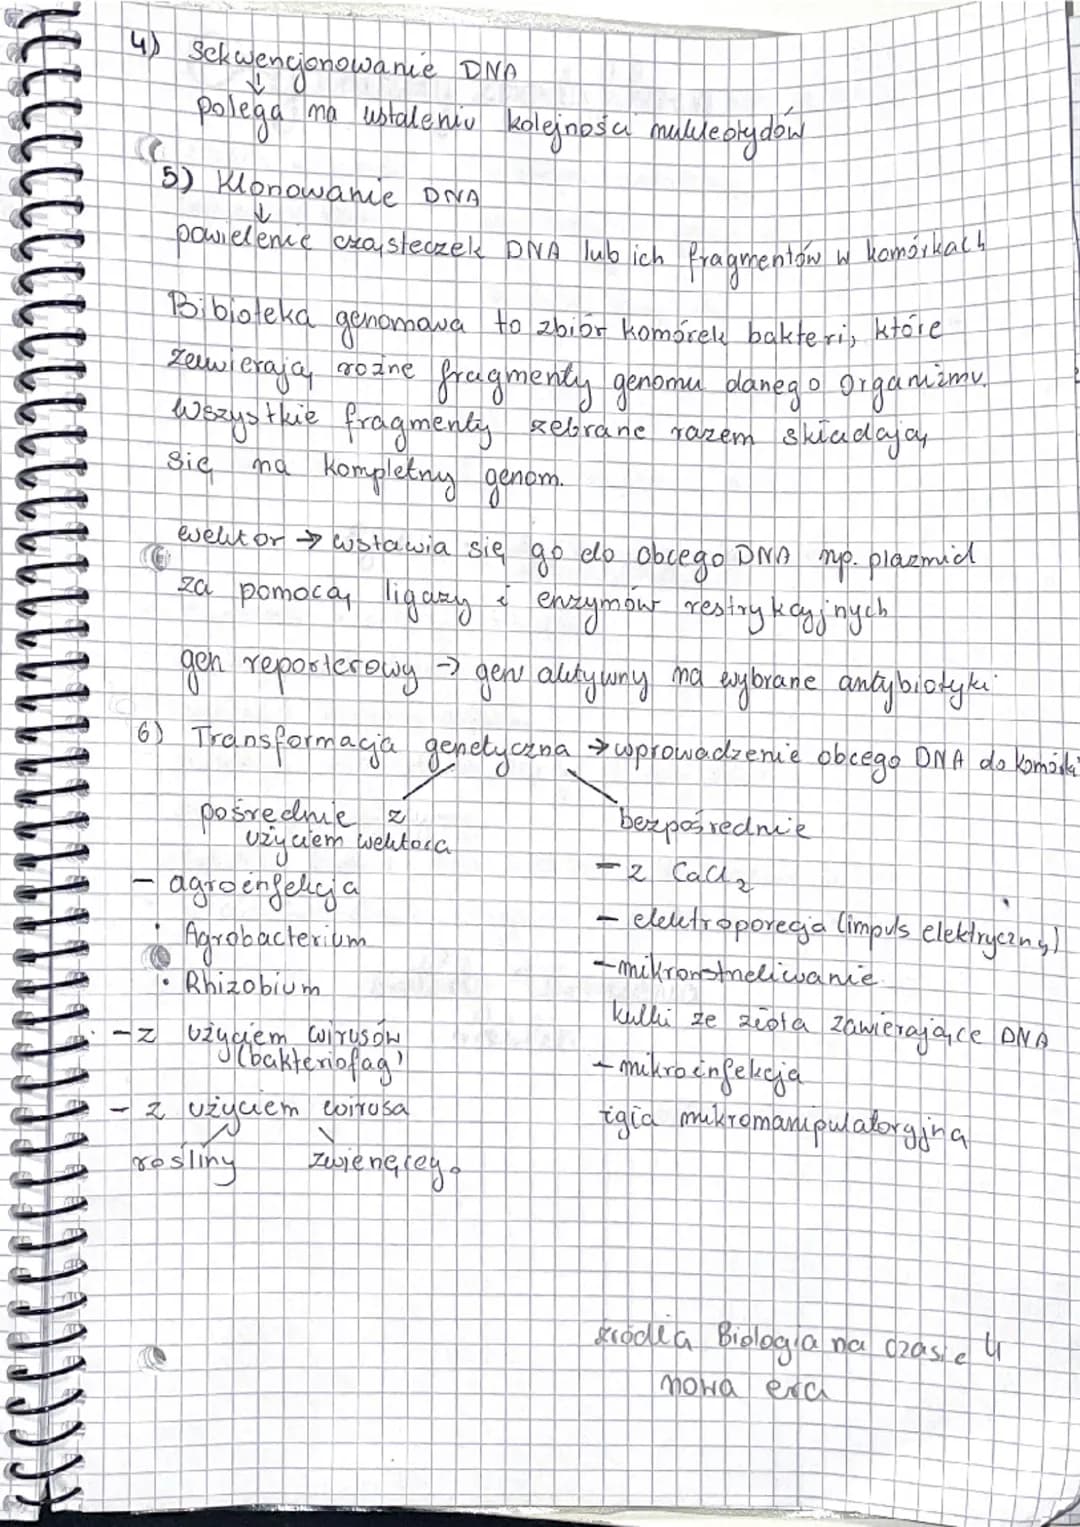 4) Sekwencjonowanie DNA
↓
polega na ustaleniu kolejności nukleotydów
5) Klonowanie DNA
↓
powielenie cząsteczek DNA lub ich fragmentów w komórkach
Bibioteka genomowa to zbiór komórek bakterii, które
zawierają rożne fragmenty genomu danego organizmu.
Wszystkie fragmenty zebrane razem składają
się na kompletny genom.
wektor → wstawia się go do obcego DNA np. plazmid
za pomocą ligazy i enzymów restrykcyjnych
gen reporterowy → gen aktywny na wybrane antybiotyki
6) Transformacja genetyczna → wprowadzenie obcego DNA do komórki
pośrednie z
użyciem wektora
- agroinfekcja
• Agrobacterium
• Rhizobium
- z użyciem wirusów
(bakteriofag)
- z użyciem wirusa
rośliny zwierzęcego
bezpośrednie
- z CaCl2
- elektroporacja (impuls elektryczny)
- mikrowstrzeliwanie
kulki ze złota zawierające DNA
- mikroinfekcja
igła mikromanipulatoryjna
źródła Biologia na czasie 4
nowa era